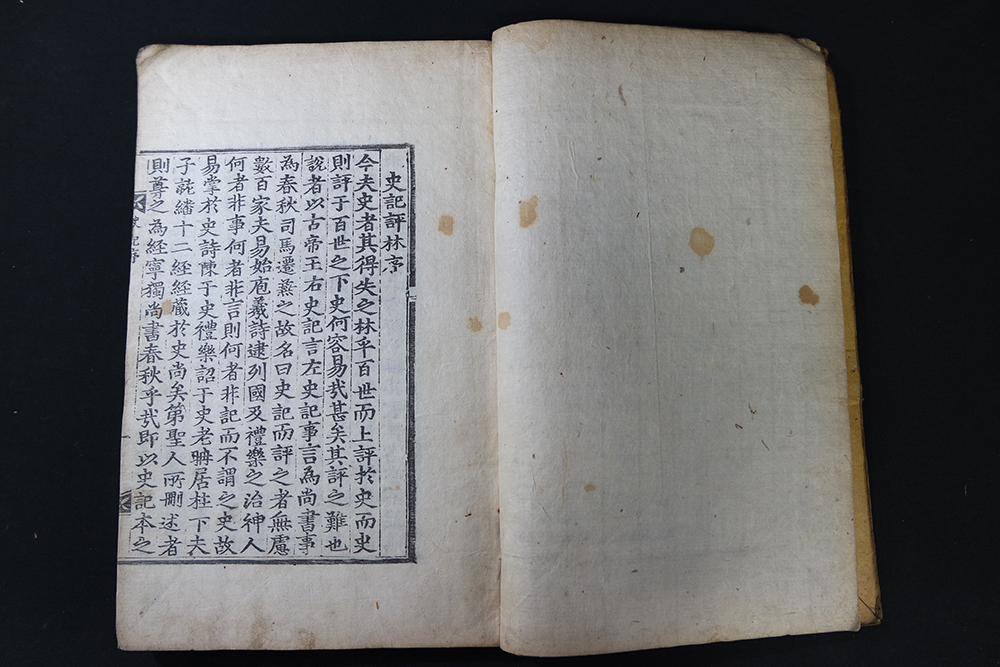 史記評林序
今夫史者其得失之林乎百世而上評於史而史
則評于百世之下史何容易㢤甚矣其評之難也
說者以古帝王右史記言左史記事言為尚書事
為春秋司馬遷蒸之故名曰史記而評之者無慮
數百家夫易始庖羲詩逮列國及禮樂之治神人
何者非事何者非言則何者非記而不謂之史故
易掌於史詩陳于史禮樂詔于史老聃居柱下夫
子繙十二經經藏於史尚矣第聖人所刪述者
則尊之為經寧獨尚書春秋乎㢤即以史記本之